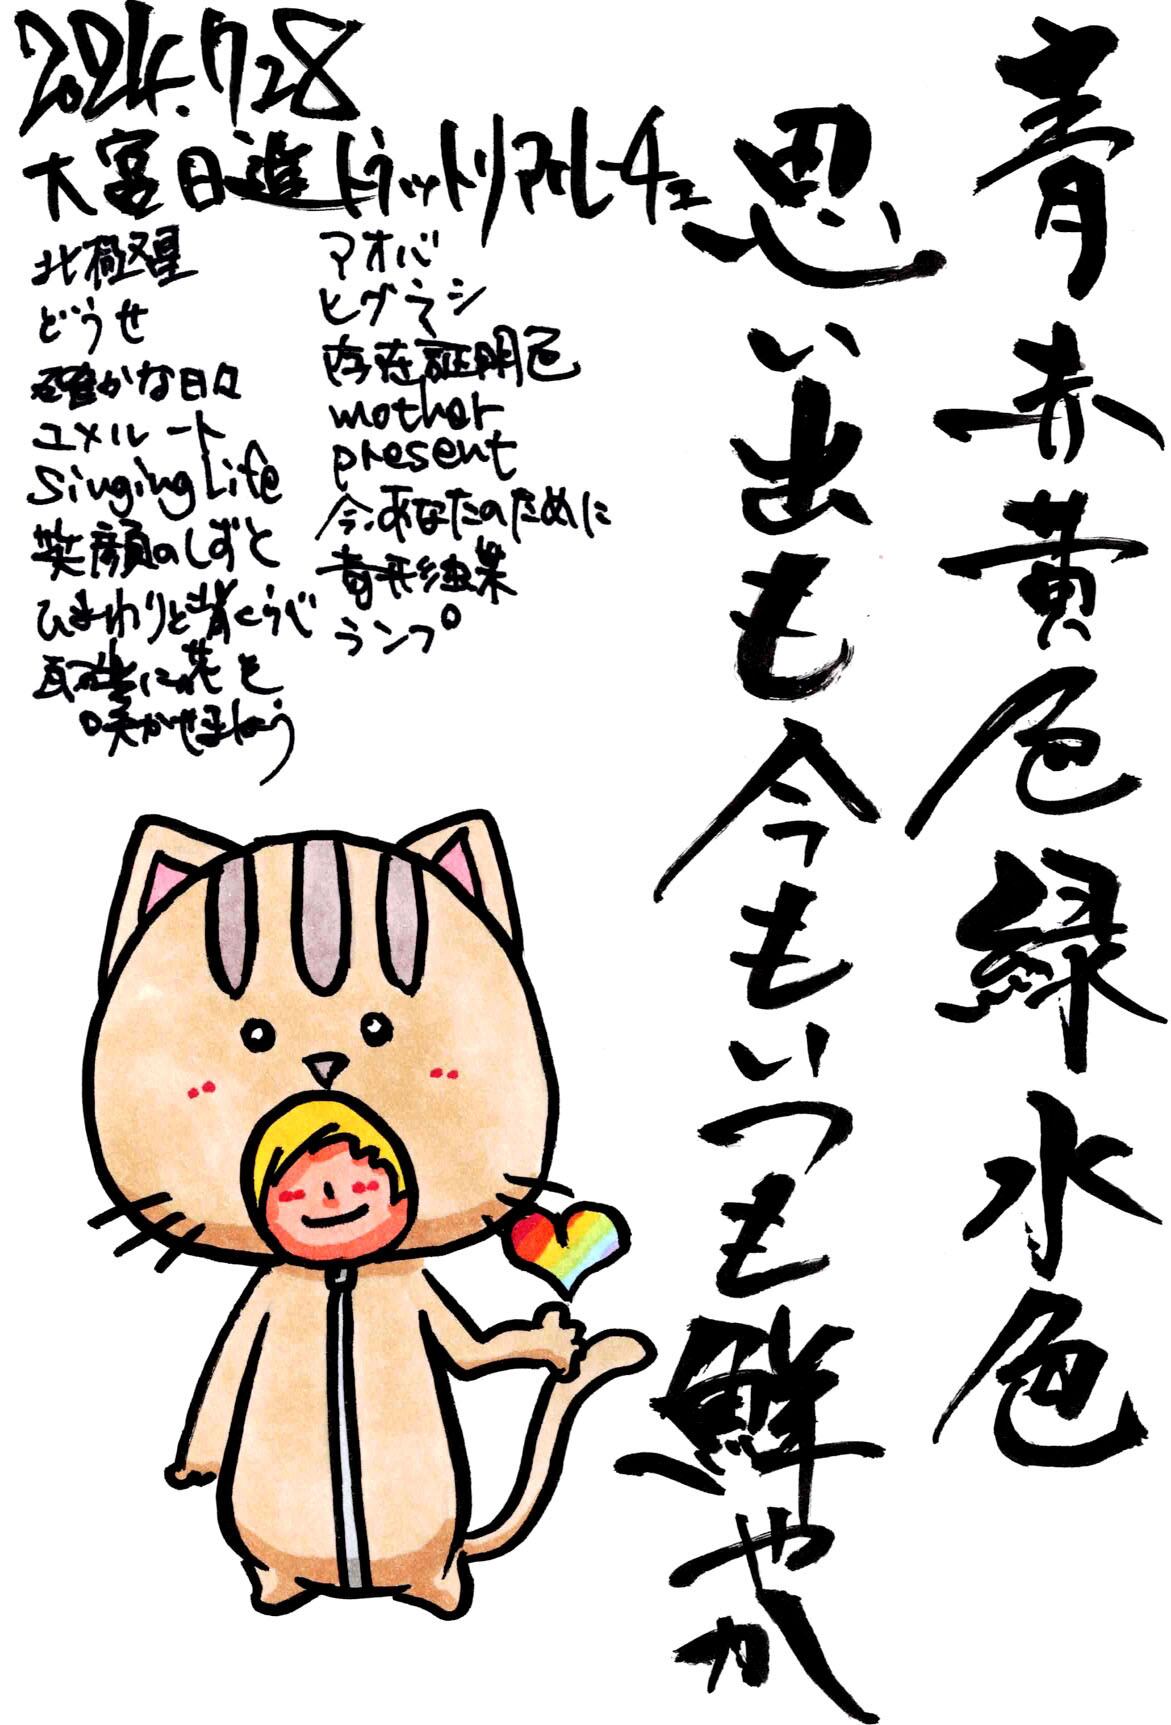 青赤黄色緑水色
思い出も今もいつも鮮やか
2024.7.28
大宮日進トラットリアフェリーチェ
北極星
どうせ
確かな日々
ユメルート
Singing Life
笑顔のしずく
ひまわりと背くらべ
瓦礫に花を
咲かせましょう
アオバ
ヒグラシ
存在証明
mother
present
今、あなたのために
青形結果
ランプ